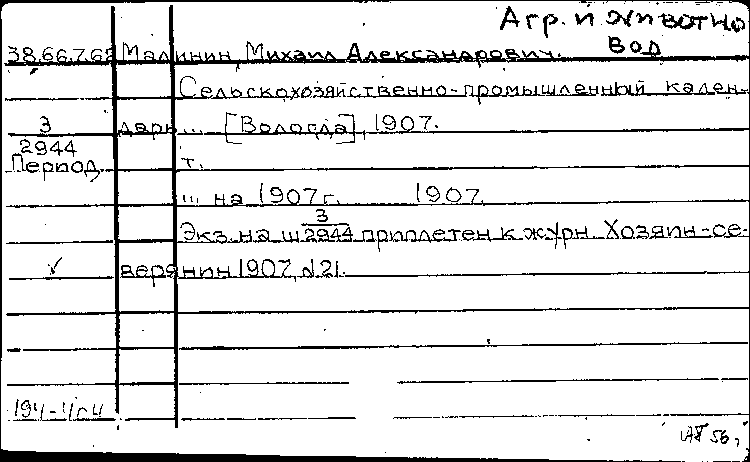 Агр. и животно
вод
38.66.7.62 Малинин, Михаил Александрович.
Сельскохозяйственно-промышленный кален-
З дарь... [Вологда], 1907.
2944
Период. т.
... на 1907 г. 1907.
Экз. на ш З/2944 приплетен к журн. Хозяин-се-
верянин 1907, №21.